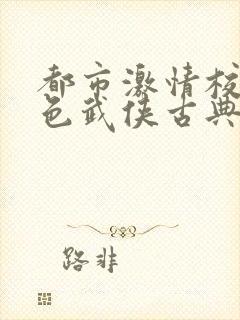 都市激情校
色武侠古典
路非